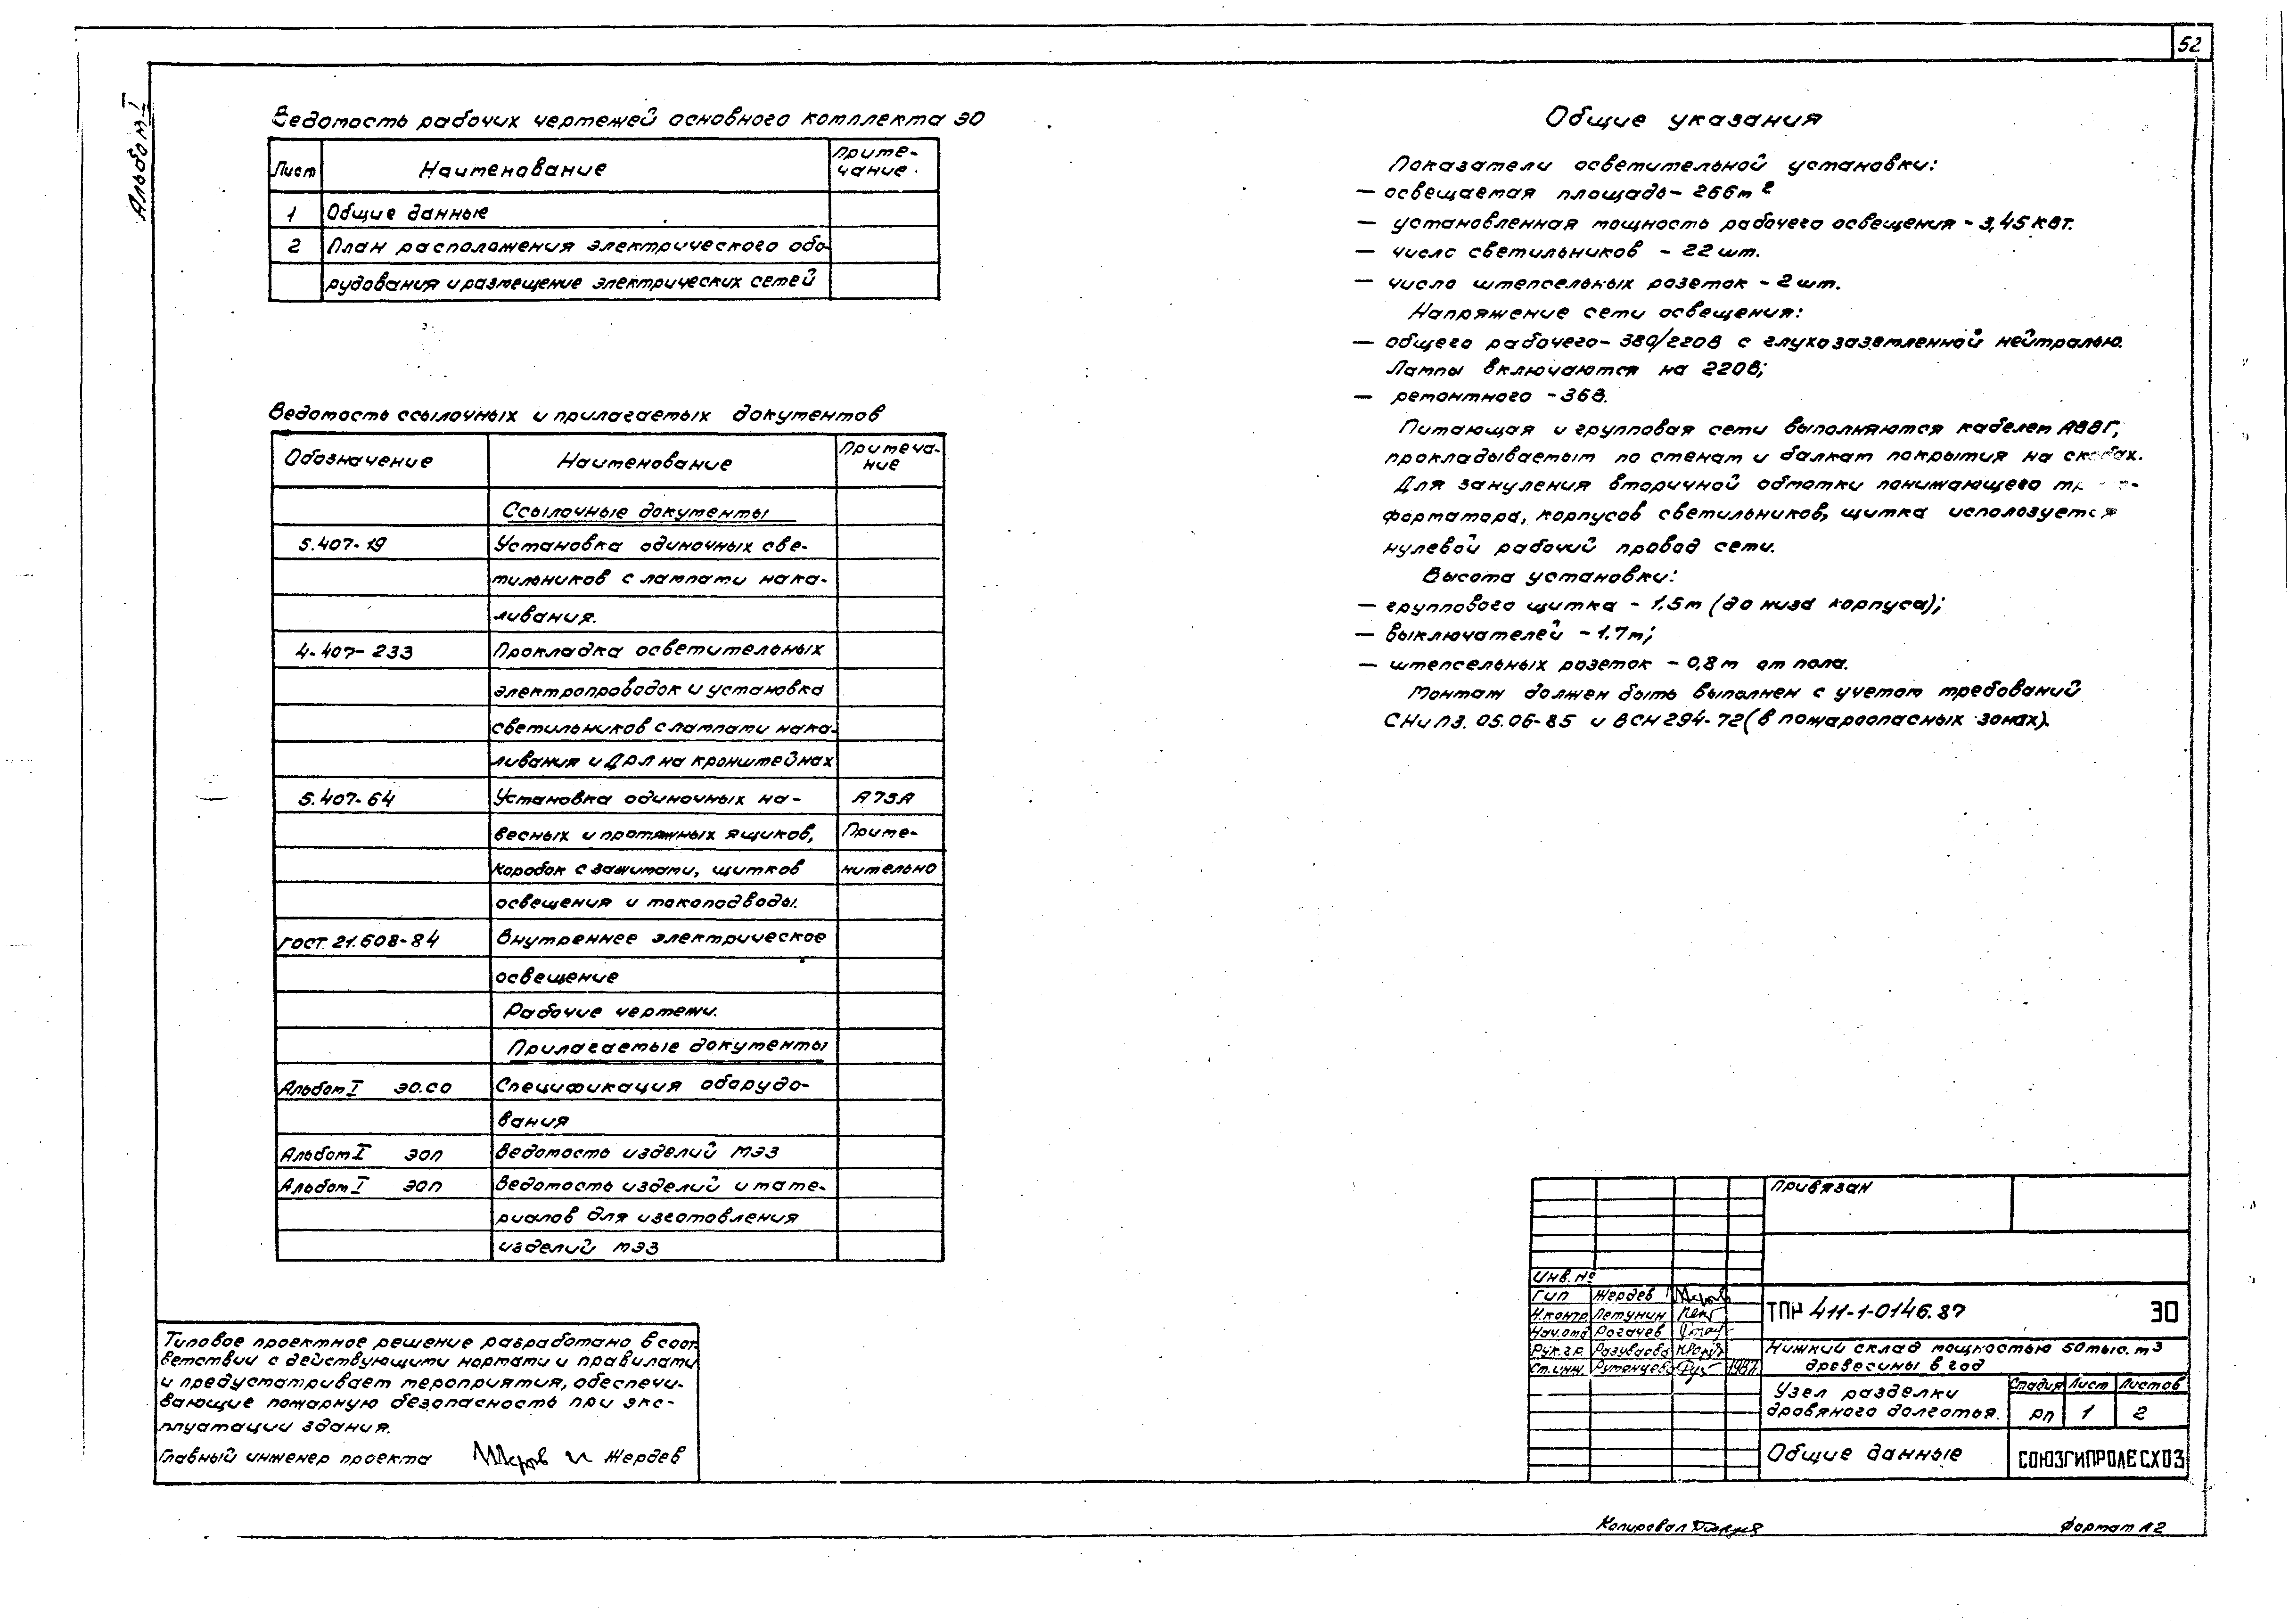 52
Альбом I
Ведомость рабочих чертежей основного комплекта ЭО
Лист Наименование Приме-
чание.
1 Общие данные
2 План расположения электрического обо-
рудования и размещение электрических сетей
Ведомость ссылочных и прилагаемых документов
Обозначение Наименование Примеча-
ние
Ссылочные документы
5.407-19 Установка одиночных све-
тильников с лампами нака-
ливания.
4.407-233 Прокладка осветительных
электропроводок и установка
светильников с лампами нака-
ливания и ДРЛ на кронштейнах
5.407-64 Установка одиночных на- А75А
весных и протяжных ящиков, Приме-
коробок с зажимами, щитков нительно
освещения и токоподводы.
ГОСТ 21.608-84 Внутреннее электрическое
освещение
Рабочие чертежи.
Прилагаемые документы
Альбом I ЭО.СО Спецификация оборудо-
вания
Альбом I ЭОП Ведомость изделий МЭЗ
Альбом I ЭОП Ведомость изделий и мате-
риалов для изготовления
изделий МЭЗ
Типовое проектное решение разработано в соот
ветствии с действующими нормами и правилами
и предусматривает мероприятия, обеспечи-
вающие пожарную безопасность при экс-
плуатации здания.
Главный инженер проекта Жердев
Общие указания
Показатели осветительной установки:
— освещаемая площадь - 266м²
— установленная мощность рабочего освещения - 3,45кВт.
— число светильников - 22 шт.
— число штепсельных розеток - 2 шт.
Напряжение сети освещения:
— общего рабочего - 380/220В с глухозаземленной нейтралью.
Лампы включаются на 220В;
— ремонтного - 36В.
Питающая и групповая сети выполняются кабелем АВВГ,
прокладываемым по стенам и балкам покрытия на скобах.
Для зануления вторичной обмотки понижающего
форматора, корпусов светильников, щитка используется
нулевой рабочий провод сети.
Высота установки:
— группового щитка - 1,5м (до низа корпуса);
— выключателей - 1,7м;
— штепсельных розеток - 0,8м от пола.
Монтаж должен быть выполнен с учетом требований
СНиП 3.05.06-85 и ВСН 294-72 (в пожароопасных зонах).
Привязан
Инв. №
ГИП Жердев
Н.контр Летунин
Нач.отд Рогачев
Рук.гр. Разуваева
Ст.инж. Румянцева 1987
ТПР 411-1-0146.87 ЭО
Нижний склад мощностью 50тыс. м³
древесины в год
Узел разделки
дровяного долготья.
Стадия Лист Листов
РП 1 2
Общие данные
СОЮЗГИПРОЛЕСХОЗ
Копировал
Формат А2